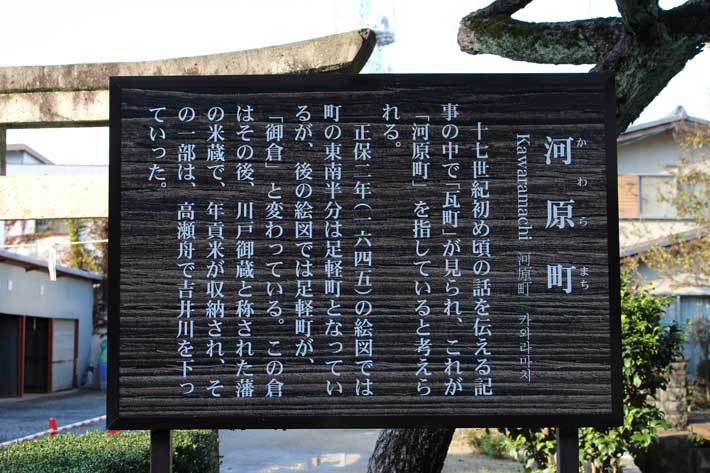 河原町
かわら まち
Kawaramachi 河原町 카와라마치
十七世紀初め頃の話を伝える記
事の中で「瓦町」が見られ、これが
「河原町」を指していると考えら
れる。
正保二年(一六四五)の絵図では
町の東南半分は足軽町となってい
るが、後の絵図では足軽町が、
「御倉」と変わっている。この倉
はその後、川戸御蔵と称された藩
の米蔵で、年貢米が収納され、そ
の一部は、高瀬舟で吉井川を下っ
ていった。